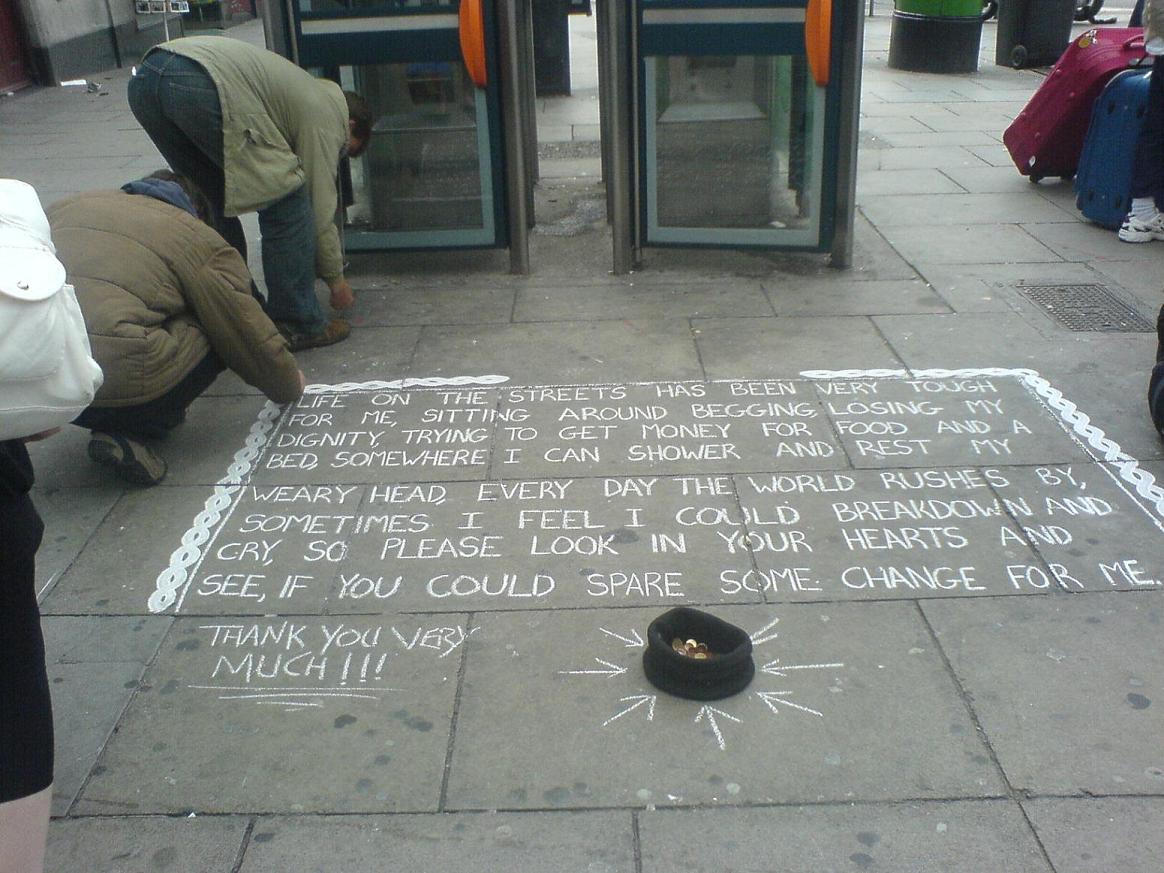 LIFE ON THE STREETS HAS BEEN VERY TOUGH
FOR ME, SITTING AROUND BEGGING, LOSING MY
DIGNITY, TRYING TO GET MONEY FOR FOOD AND A
BED, SOMEWHERE I CAN SHOWER AND REST MY
WEARY HEAD, EVERY DAY THE WORLD RUSHES BY,
SOMETIMES I FEEL I COULD BREAKDOWN AND
CRY, SO PLEASE LOOK IN YOUR HEARTS AND
SEE, IF YOU COULD SPARE SOME CHANGE FOR ME.
THANK YOU VERY
MUCH!!!